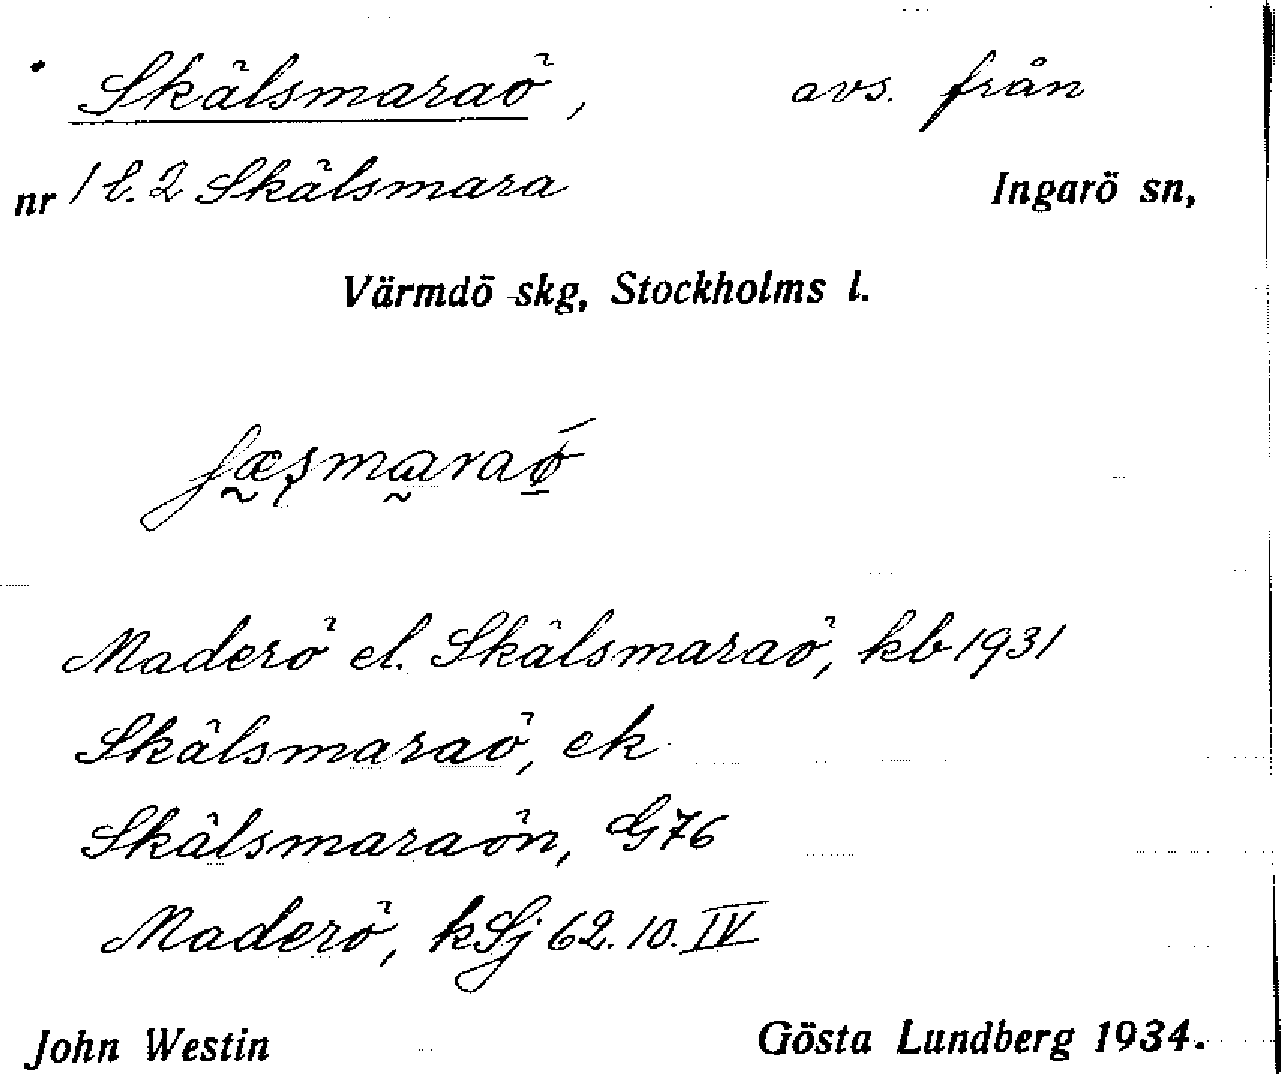 Skälsmaraö, avs. från
nr 1 l. 2 Skälsmara Ingarö sn,
Värmdö skg, Stockholms l.
Maderö el. Skälsmaraö, kb 1931
Skälsmaraö, ek
Skälsmaraön, G76
Maderö, kSj 62.10.IV
John Westin Gösta Lundberg 1934.